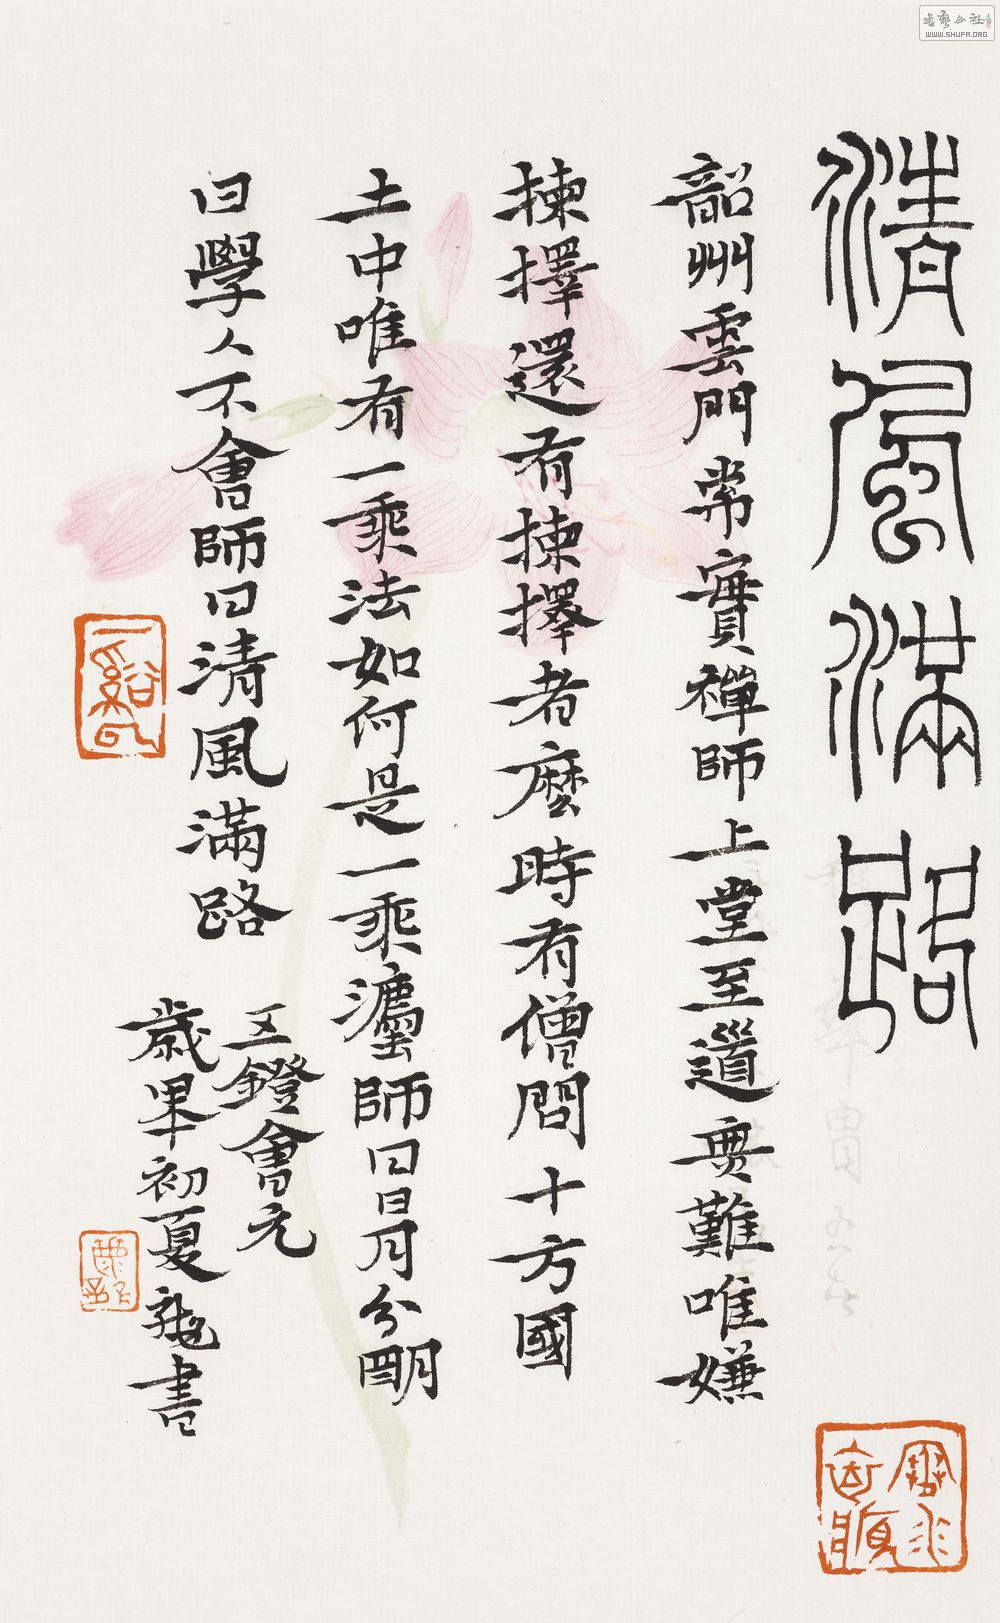 清風滿路
韶州雲門常實禪師上堂至道無難唯嫌
揀擇還有揀擇者麼時有僧問十方國
土中唯有一乘法如何是一乘法師曰日月分明
曰學人不會師曰清風滿路
五鐙會元
歲畢初夏 書
WWW.SHUFA.ORG